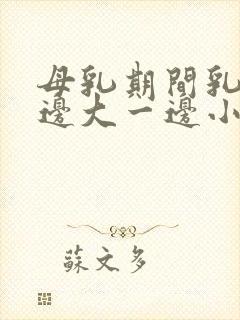 母乳期間乳
邊大一邊小
蘇文多